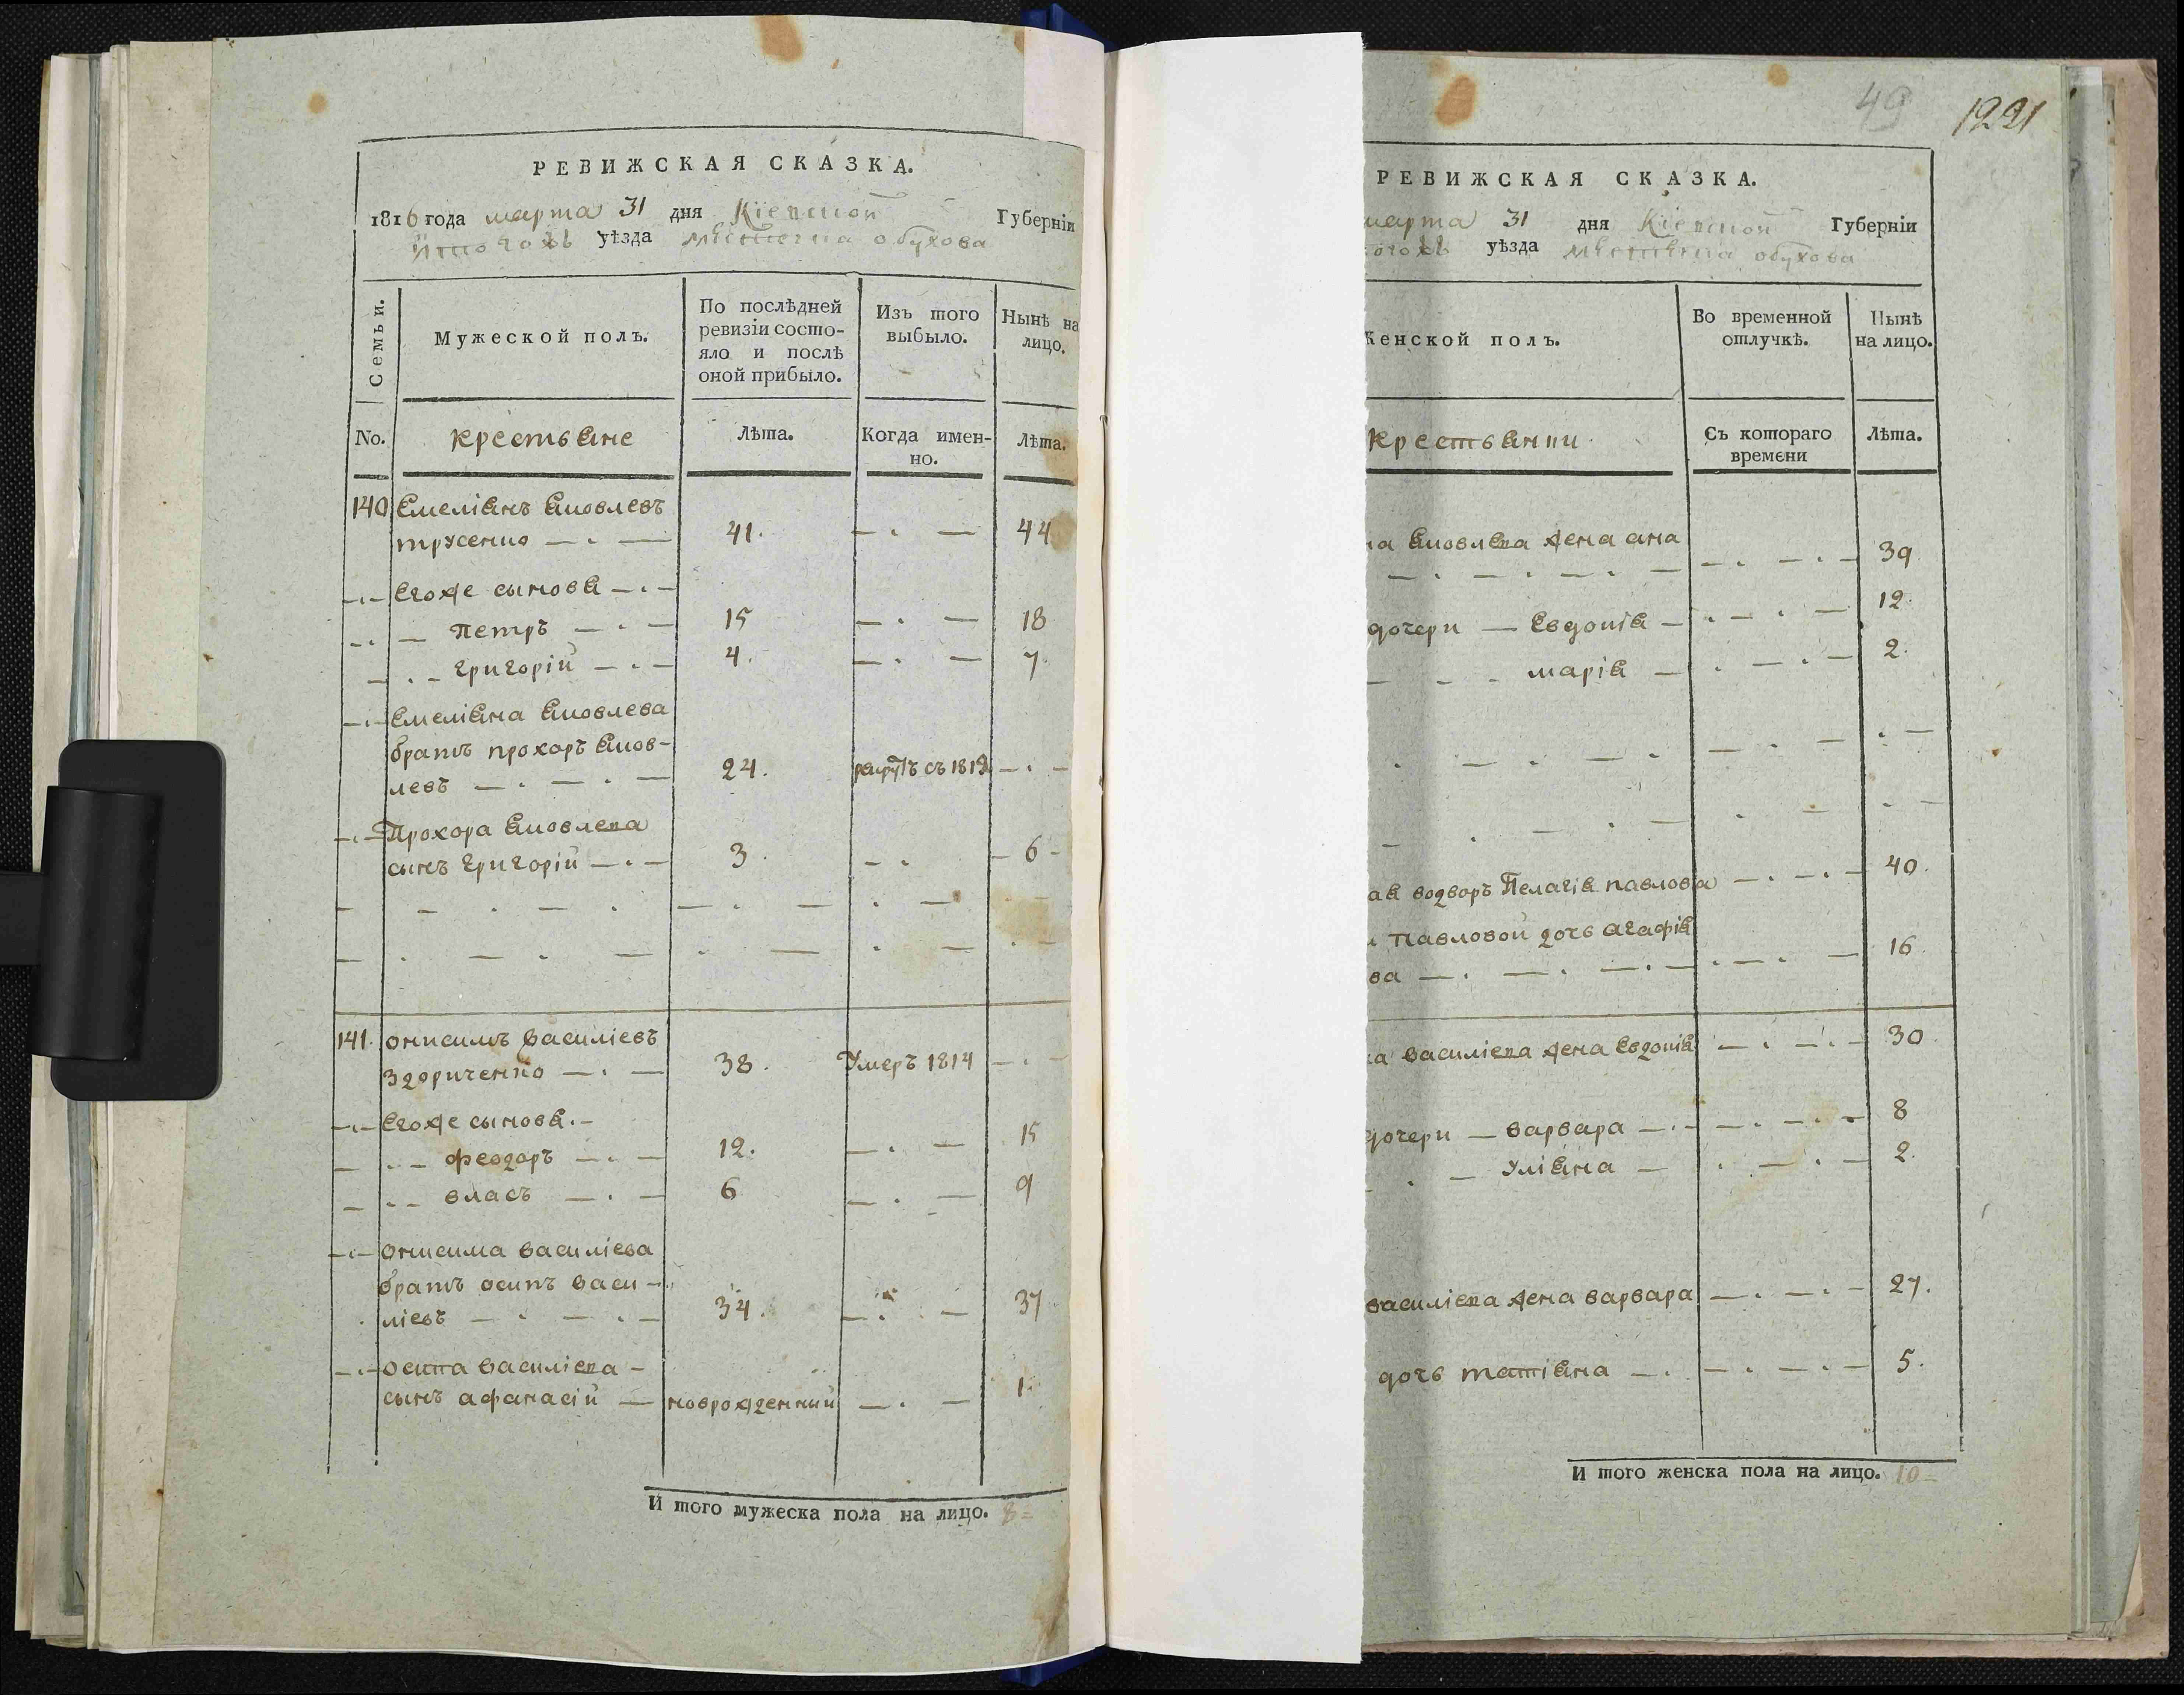 РЕВИЖСКАЯ СКАЗКА.
1816 года марта 31 дня Кіевской Губерніи
уѣзда местечка обухова
Семьи.
Мужеской полъ.
По послѣдней
ревизіи состо-
яло и послѣ
оной прибыло.
Изъ того
выбыло.
Нынѣ на
лицо.
No.
крестьяне
Лѣта.
Когда имен-
но.
Лѣта.
140 Емеліянъ Яковлевъ
трусенко 41. 44
Егоже сыновя
Петръ 15 18
григорій 4. 7.
Емеліяна Яковлева
братъ прохоръ Яков-
левъ 24. рекрутъ съ 1812
Прохора Яковлева
сынъ григорій 3. 6
141. онисимъ василіевъ
здориченко 38. Умеръ 1814
Егоже сыновя
феодоръ 12. 15
власъ 6 9
онисима василіева
братъ осипъ васи-
ліевъ 34. 37
осипа василіева
сынъ афанасій новрожденный 1.
И того мужеска пола на лицо. 8
49 1221
РЕВИЖСКАЯ СКАЗКА.
марта 31 дня Кіевской Губерніи
уѣзда местечка обухова
Женской полъ.
Во временной
отлучкѣ.
Нынѣ
на лицо.
крестьянки
Съ котораго
времени
Лѣта.
на Яковлева жена анна
39
дочери Евдокія 12.
марія 2.
водворъ Пелагія павлова 40.
Павловой дочь агафія
ва 16
на василіева жена Евдокія 30
дочери варвара 8
Уліяна 2.
василіева жена варвара 27.
дочь татіяна 5.
И того женска пола на лицо. 10